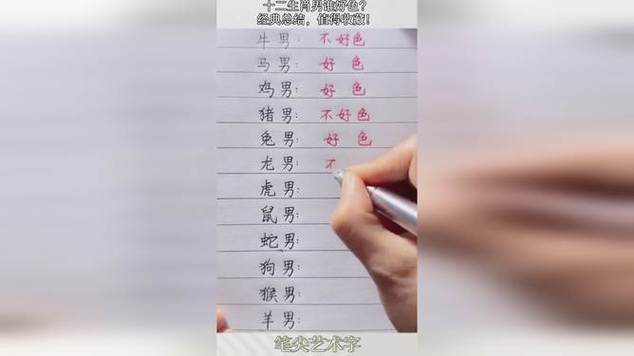 十二生肖男谁好色？
经典总结，值得收藏！
牛男：不好色
马男：好 色
鸡男：好 色
猪男：不好色
兔男：好 色
龙男：不
虎男：
鼠男：
蛇男：
狗男：
猴男：
羊男：
笔尖艺术字